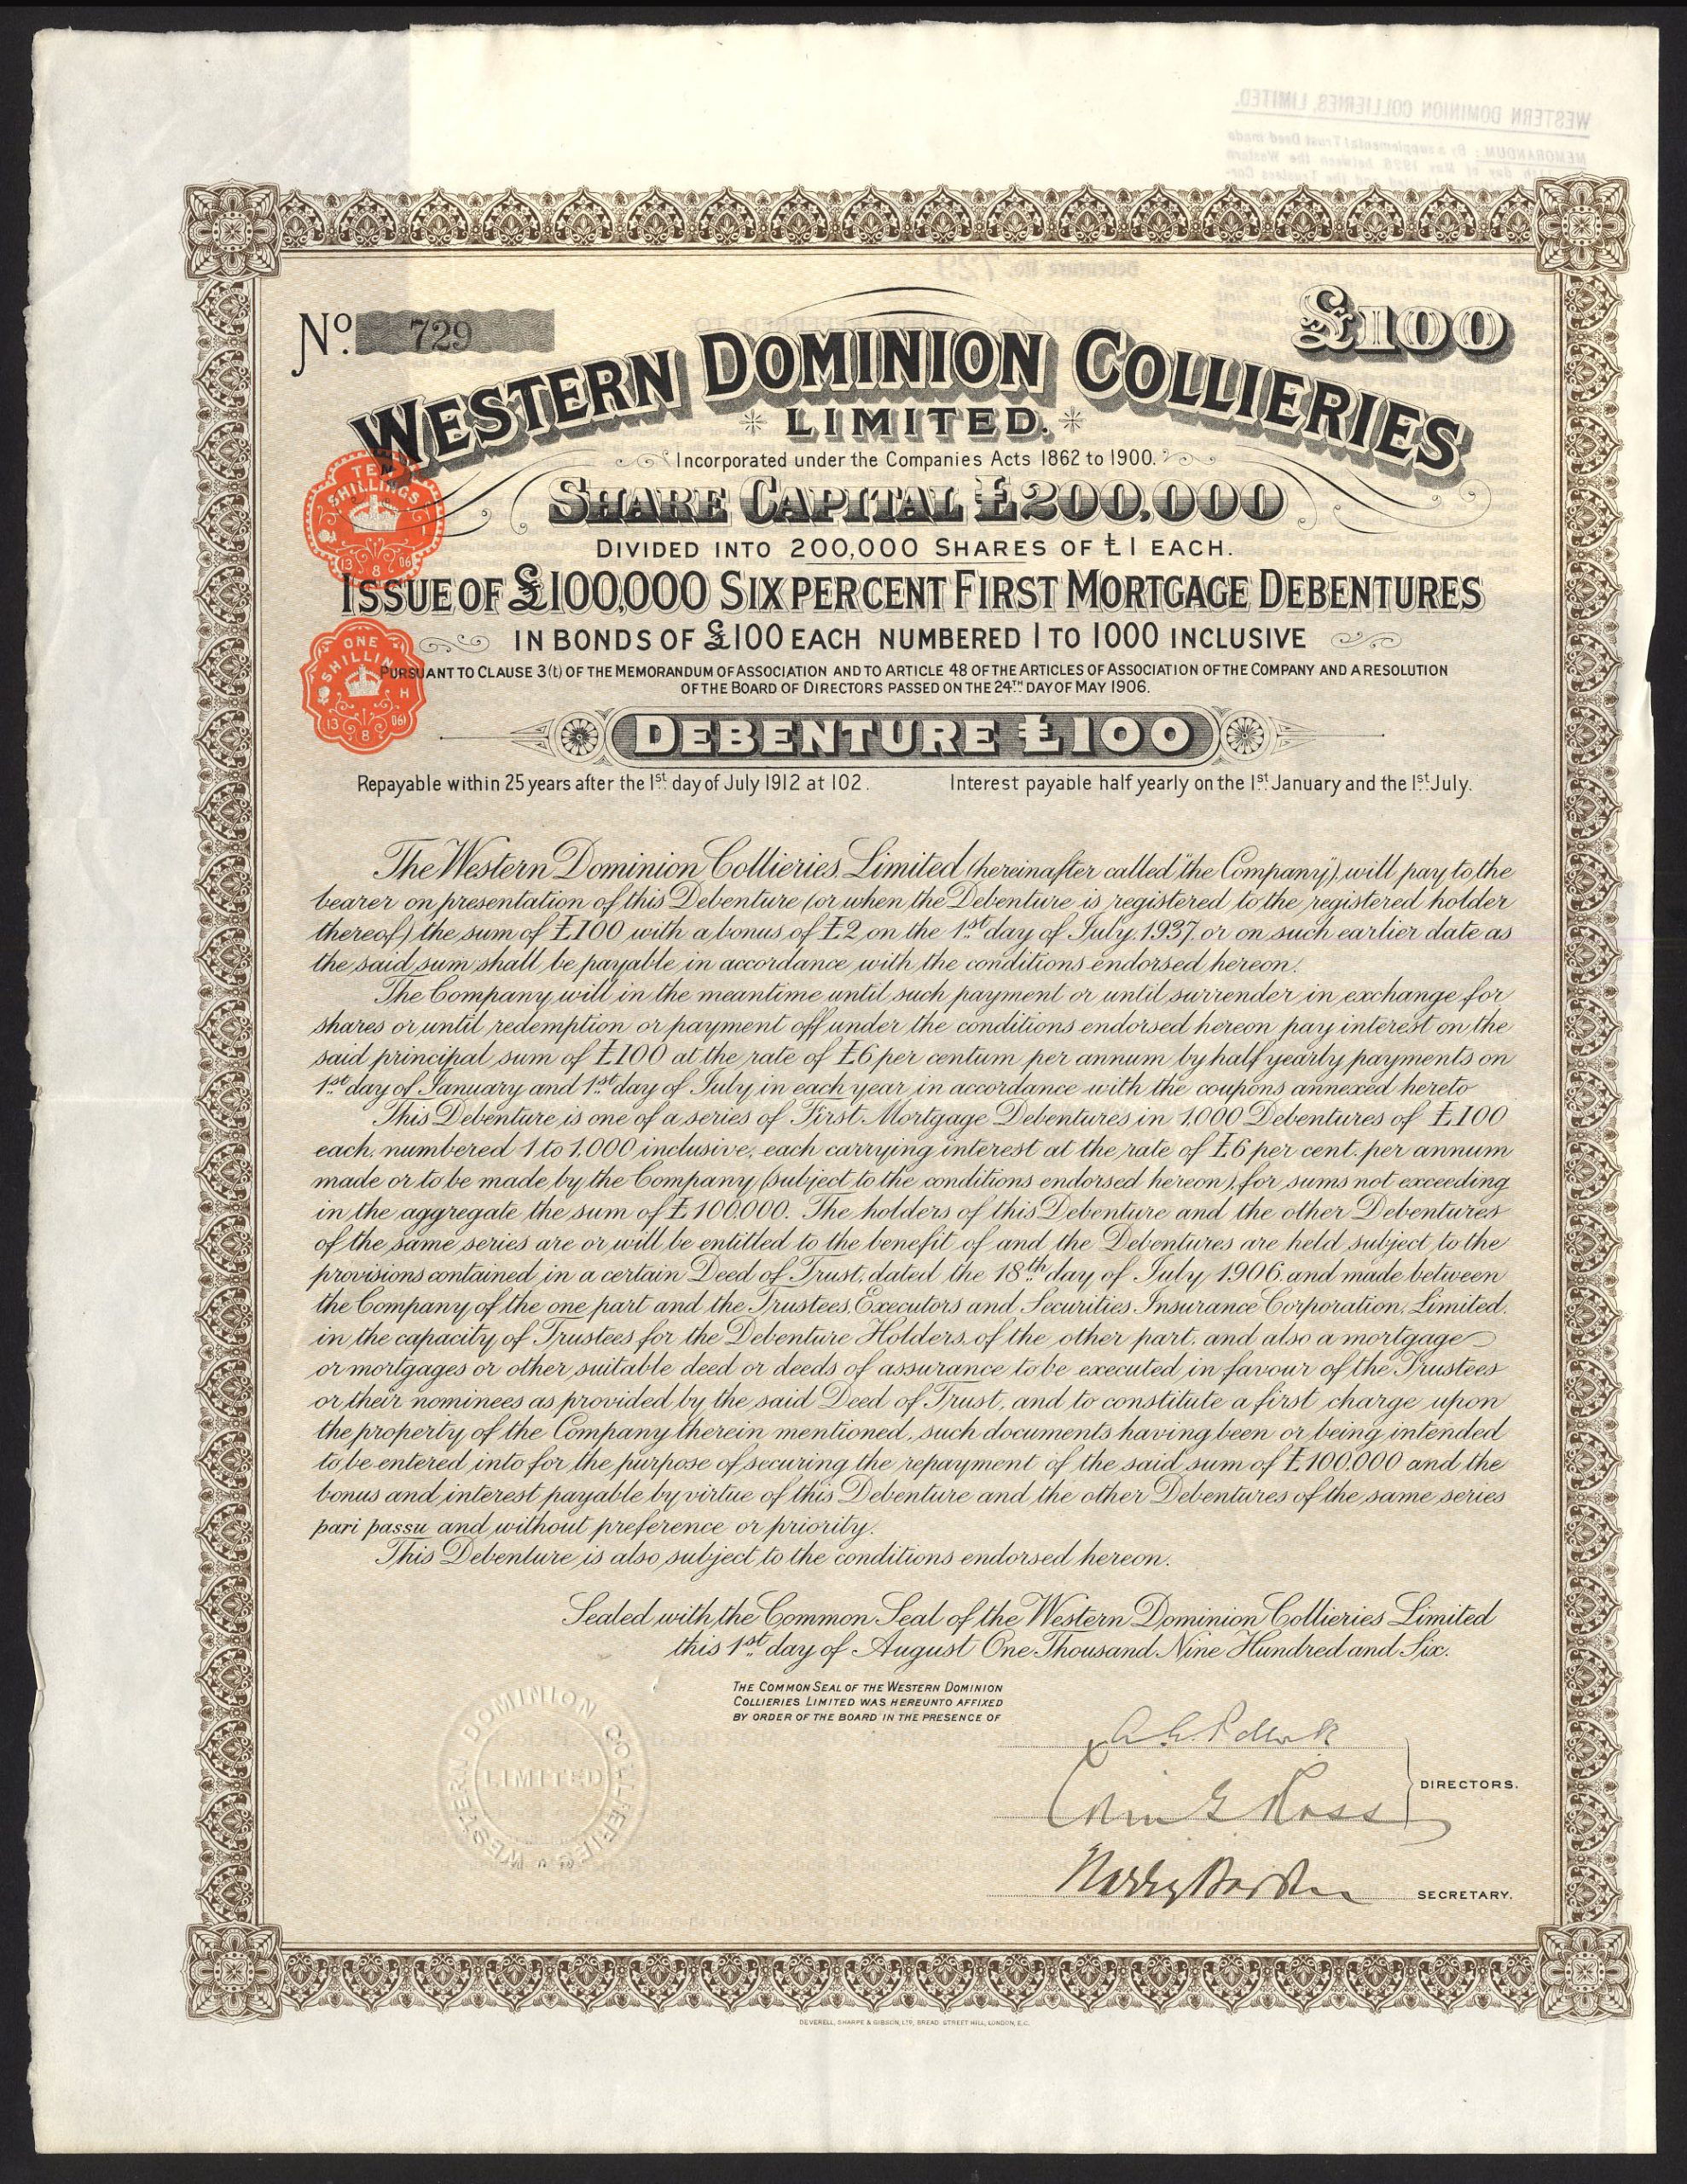 WESTERN DOMINION COLLIERIES, LIMITED.
MEMORANDUM: By a supplemental Trust Deed made
day of May 1928 between the Western
and the Trustees Cor-
No. 729
£100
WESTERN DOMINION COLLIERIES
LIMITED.
Incorporated under the Companies Acts 1862 to 1900.
SHARE CAPITAL £200,000
DIVIDED INTO 200,000 SHARES OF £1 EACH.
TEN
SHILLINGS
13 8 06
ISSUE OF £100,000 SIX PER CENT FIRST MORTGAGE DEBENTURES
IN BONDS OF £100 EACH NUMBERED 1 TO 1000 INCLUSIVE
ONE
SHILLING
H
13 8 06
PURSUANT TO CLAUSE 3(t) OF THE MEMORANDUM OF ASSOCIATION AND TO ARTICLE 48 OF THE ARTICLES OF ASSOCIATION OF THE COMPANY AND A RESOLUTION
OF THE BOARD OF DIRECTORS PASSED ON THE 24TH DAY OF MAY 1906.
DEBENTURE £100
Repayable within 25 years after the 1st day of July 1912 at 102. Interest payable half yearly on the 1st January and the 1st July.
The Western Dominion Collieries, Limited (hereinafter called "the Company"), will pay to the
bearer on presentation of this Debenture (or when the Debenture is registered to the registered holder
thereof) the sum of £100 with a bonus of £2 on the 1st day of July, 1937, or on such earlier date as
the said sum shall be payable in accordance with the conditions endorsed hereon.
The Company will in the meantime until such payment or until surrender in exchange for
shares or until redemption or payment off under the conditions endorsed hereon pay interest on the
said principal sum of £100 at the rate of £6 per centum per annum by half yearly payments on
1st day of January and 1st day of July in each year in accordance with the coupons annexed hereto
This Debenture is one of a series of First Mortgage Debentures in 1,000 Debentures of £100
each, numbered 1 to 1,000 inclusive, each carrying interest at the rate of £6 per cent. per annum
made or to be made by the Company (subject to the conditions endorsed hereon), for sums not exceeding
in the aggregate the sum of £100,000. The holders of this Debenture and the other Debentures
of the same series are or will be entitled to the benefit of and the Debentures are held subject to the
provisions contained in a certain Deed of Trust, dated the 18th day of July 1906, and made between
the Company of the one part and the Trustees, Executors and Securities Insurance Corporation, Limited.
in the capacity of Trustees for the Debenture Holders, of the other part, and also a mortgage
or mortgages or other suitable deed or deeds of assurance to be executed in favour of the Trustees
or their nominees as provided by the said Deed of Trust, and to constitute a first charge upon
the property of the Company therein mentioned, such documents having been or being intended
to be entered into for the purpose of securing the repayment of the said sum of £100,000 and the
bonus and interest payable by virtue of this Debenture and the other Debentures of the same series
pari passu and without preference or priority.
This Debenture is also subject to the conditions endorsed hereon.
Sealed with the Common Seal of the Western Dominion Collieries Limited
this 1st day of August One Thousand Nine Hundred and Six.
THE COMMON SEAL OF THE WESTERN DOMINION
COLLIERIES LIMITED WAS HEREUNTO AFFIXED
BY ORDER OF THE BOARD IN THE PRESENCE OF
WESTERN DOMINION COLLIERIES
LIMITED
Ross
DIRECTORS.
SECRETARY.
DEVERELL, SHARPE & GIBSON, LTD, BREAD STREET HILL, LONDON, E.C.